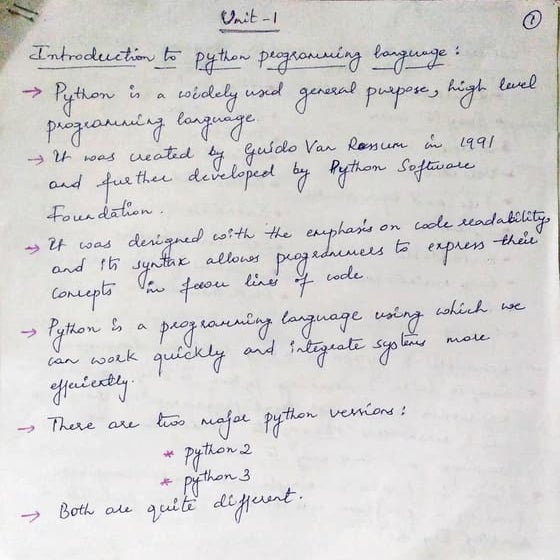 Unit - 1
1
Introduction to python programming language :
→ Python is a widely used general purpose, high level
programming language
→ It was created by Guido Van Rossum in 1991
and further developed by Python Software
Foundation.
→ It was designed with the emphasis on code readability,
and its syntax allows programmers to express their
concepts in fewer lines of code
→ Python is a programming language using which we
can work quickly and integrate systems more
efficiently.
→ There are two major python versions :
* python 2
* python 3
→ Both are quite different.